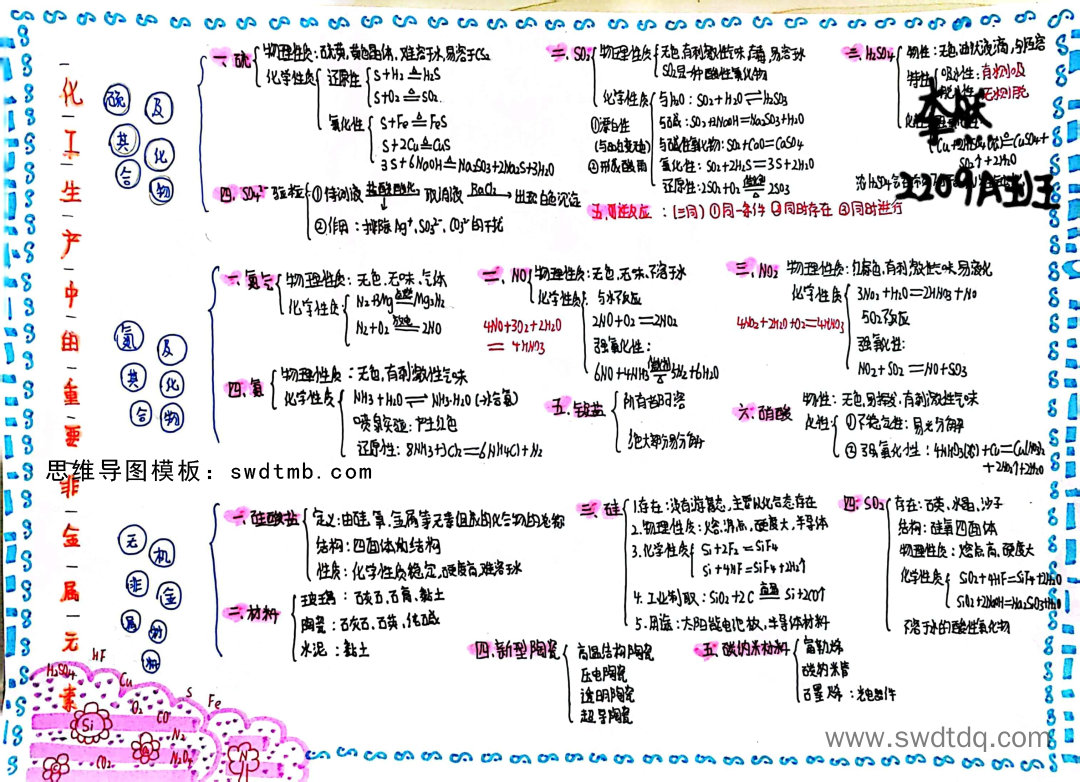 化工生产中的重要非金属元素
硫及其化合物
一、硫
物理性质：硫黄，黄色晶体，难溶于水，易溶于CS₂
化学性质
还原性
S+H₂≜H₂S
S+O₂≜SO₂
氧化性
S+Fe≜FeS
S+2Cu≜CuS
3S+6NaOH≜Na₂SO₃+2Na₂S+3H₂O
二、SO₂
物理性质
无色，有刺激性气味，有毒，易溶于水
SO₂是一种酸性氧化物
化学性质
①漂白性
与H₂O：SO₂+H₂O⇌H₂SO₃
与碱：SO₂+2NaOH=Na₂SO₃+H₂O
与碱性氧化物：SO₂+CaO=CaSO₄
氧化性：SO₂+2H₂S=3S+2H₂O
还原性：2SO₂+O₂ 催化剂≜ 2SO₃
三、H₂SO₄
物性：无色，油状液滴，
特性
吸水性：有则吸
脱水性：无则脱
李妖
2209A班王
四、SO₄²⁻检验
①待测液 盐酸酸化→ 取清液 BaCl₂→ 出现白色沉淀
②作用：排除Ag⁺，SO₃²⁻，CO₃²⁻的干扰
五、可逆反应：(三同) ①同一条件 ②同时存在 ③同时进行
氮及其化合物
一、氮气
物理性质：无色，无味，气体
化学性质
N₂+3Mg 点燃 Mg₃N₂
N₂+O₂ 放电 2NO
二、NO
物理性质：无色，无味，不溶于水
化学性质
与水不反应
2NO+O₂=2NO₂
强氧化性：
6NO+4NH₃ 催化剂≜ 5N₂+6H₂O
4NO+3O₂+2H₂O
=4HNO₃
三、NO₂
物理性质：红棕色，有刺激性气味，易液化
化学性质
3NO₂+H₂O=2HNO₃+NO
强氧化性：
NO₂+SO₂=NO+SO₃
4NO₂+2H₂O+O₂=4HNO₃
四、氨
物理性质：无色，有刺激性气味
化学性质
NH₃+H₂O⇌NH₃·H₂O(一水合氨)
喷泉实验：产生红色
还原性：8NH₃+3Cl₂=6NH₄Cl+N₂
五、铵盐
所有都可溶
绝大部分易分解
六、硝酸
物性：无色，易挥发，有刺激性气味
化性
①不稳定性：见光分解
②强氧化性：4HNO₃(浓)+Cu=Cu(NO₃)₂
+2NO₂↑+2H₂O
思维导图模板：swdtmb.com
无机非金属材料
一、硅酸盐
定义：由硅，氧，金属等元素组成的化合物的总称
结构：四面体构结构
性质：化学性质稳定，硬度高，难溶于水
二、材料
玻璃：石灰石，石膏，黏土
陶瓷：石灰石，石英，纯碱
水泥：黏土
三、硅
1.存在：没有游离态，主要以化合态存在
2.物理性质：熔、沸点，硬度大，半导体
3.化学性质
Si+2F₂=SiF₄
Si+4HF=SiF₄+2H₂↑
4.工业制取：SiO₂+2C 高温 Si+2CO↑
5.用途：太阳能电池板，半导体材料
四、SiO₂
存在：石英，水晶，沙子
结构：硅氧四面体
物理性质：熔点高，硬度大
化学性质
SiO₂+4HF=SiF₄+2H₂O
SiO₂+2NaOH=Na₂SiO₃+H₂O
不溶于水的酸性氧化物
四、新型陶瓷
高温结构陶瓷
压电陶瓷
透明陶瓷
超导陶瓷
五、碳纳米材料
富勒烯
碳纳米管
石墨烯：光电器件
HF
H₂SO₄
Cu
S
Fe
O₂
CO
Si
N₂
N₂O₄
CO₂
N
www.swdtdq.com